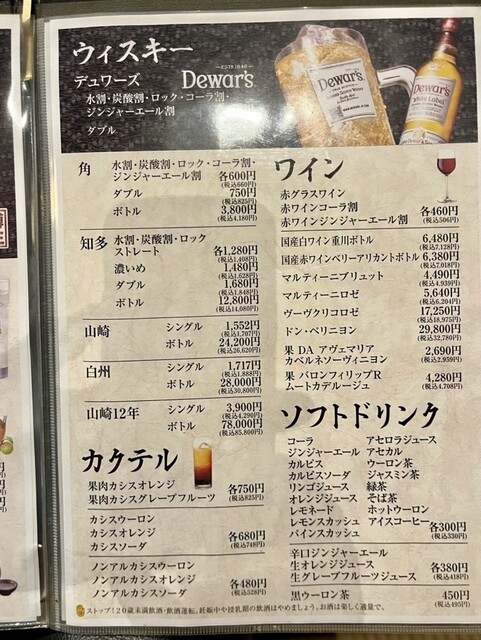 ウィスキー
デュワーズ
Dewar's
水割・炭酸割・ロック・コーラ割・
ジンジャーエール割
ダブル
Dewar's
Dewar's
White Label
角 水割・炭酸割・ロック・コーラ割・
ジンジャーエール割 各600円
(税込660円)
ダブル 750円
(税込825円)
ボトル 3,800円
(税込4,180円)
知多 水割・炭酸割・ロック
ストレート 各1,280円
(税込1,408円)
濃いめ 1,480円
(税込1,628円)
ダブル 1,680円
(税込1,848円)
ボトル 12,800円
(税込14,080円)
山崎 シングル 1,552円
(税込1,707円)
ボトル 24,200円
(税込26,620円)
白州 シングル 1,717円
(税込1,888円)
ボトル 28,000円
(税込30,800円)
山崎12年 シングル 3,900円
(税込4,290円)
ボトル 78,000円
(税込85,800円)
カクテル
果肉カシスオレンジ
果肉カシスグレープフルーツ 各750円
(税込825円)
カシスウーロン
カシスオレンジ
カシスソーダ 各680円
(税込748円)
ノンアルカシスウーロン
ノンアルカシスオレンジ
ノンアルカシスソーダ 各480円
(税込528円)
ワイン
赤グラスワイン
赤ワインコーラ割
赤ワインジンジャーエール割 各460円
(税込506円)
国産白ワイン重川ボトル 6,480円
(税込7,128円)
国産赤ワインベリーアリカントボトル 6,380円
(税込7,018円)
マルティーニブリュット 4,490円
(税込4,939円)
マルティーニロゼ 5,640円
(税込6,204円)
ヴーヴクリコロゼ 17,250円
(税込18,975円)
ドン・ペリニヨン 29,800円
(税込32,780円)
果 DA アヴェマリア
カベルネソーヴィニヨン 2,690円
(税込2,959円)
果 バロンフィリップR
ムートカデルージュ 4,280円
(税込4,708円)
ソフトドリンク
コーラ アセロラジュース
ジンジャーエール アセカル
カルピス ウーロン茶
カルピスソーダ ジャスミン茶
リンゴジュース 緑茶
オレンジジュース そば茶
レモネード ホットウーロン
レモンスカッシュ アイスコーヒー
パインスカッシュ 各300円
(税込330円)
辛口ジンジャーエール
生オレンジジュース
生グレープフルーツジュース 各380円
(税込418円)
黒ウーロン茶 450円
(税込495円)
ストップ!20歳未満飲酒・飲酒運転。妊娠中や授乳期の飲酒はやめましょう。お酒は楽しく適量で。